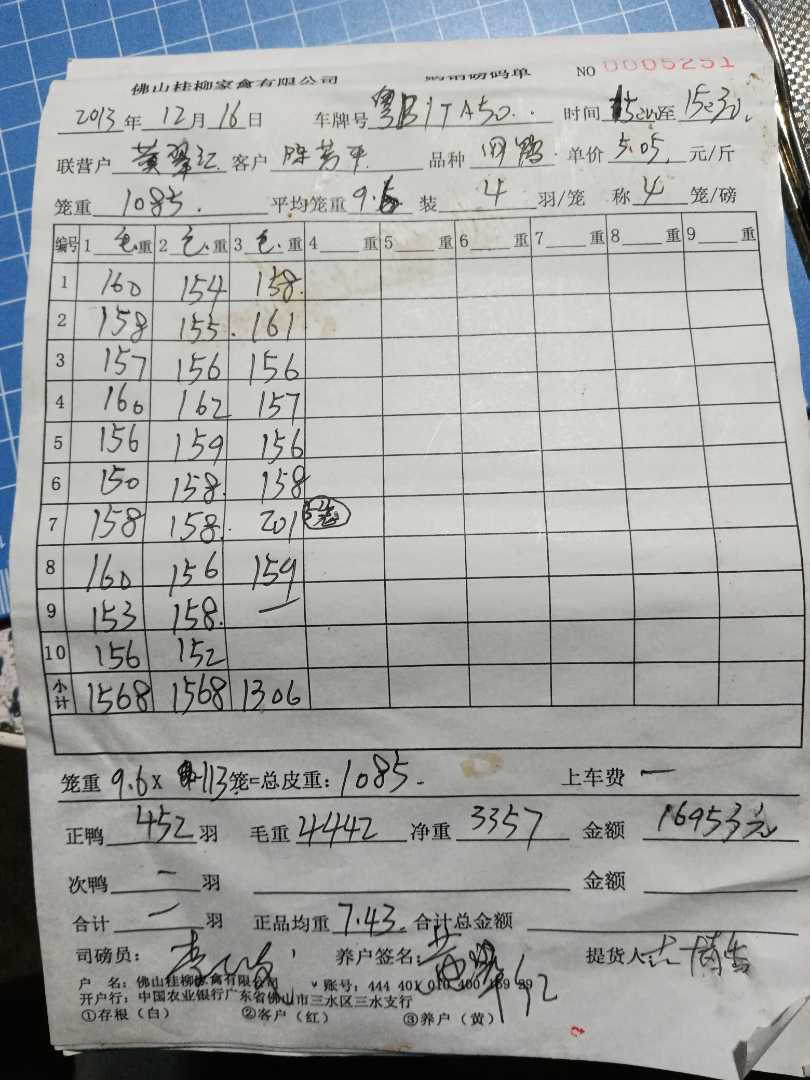 佛山桂柳家禽有限公司 磅码单 NO 0005251
2013年 12月 16日 车牌号 粤B1TA50 时间 至 15:30
联营户 黄翠红 客户 陈芳平 品种 单价 5.05 元/斤
笼重 1085. 平均笼重 9.6 装 4 羽/笼 称 4 笼/磅
编号 1 毛重 2 毛重 3 毛重 4 重 5 重 6 重 7 重 8 重 9 重
1 160 154 158
2 158 155 161
3 157 156 156
4 160 162 157
5 156 159 156
6 150 158 158
7 158 158 201
8 160 156 159
9 153 158 一
10 156 152
小计 1568 1568 1306
笼重 9.6 x 113 笼=总皮重: 1085 上车费 一
正鸭 452 羽 毛重 4442 净重 3357 金额 16953元
次鸭 一 羽 金额
合计 一 羽 正品均重 7.43 合计总金额
司磅员: 养户签名: 黄翠红 提货人:
户 名: 佛山桂柳家禽有限公司 账号: 444 401 010 400
开户行: 中国农业银行广东省佛山市三水区三水支行
①存根（白） ②客户（红） ③养户（黄）